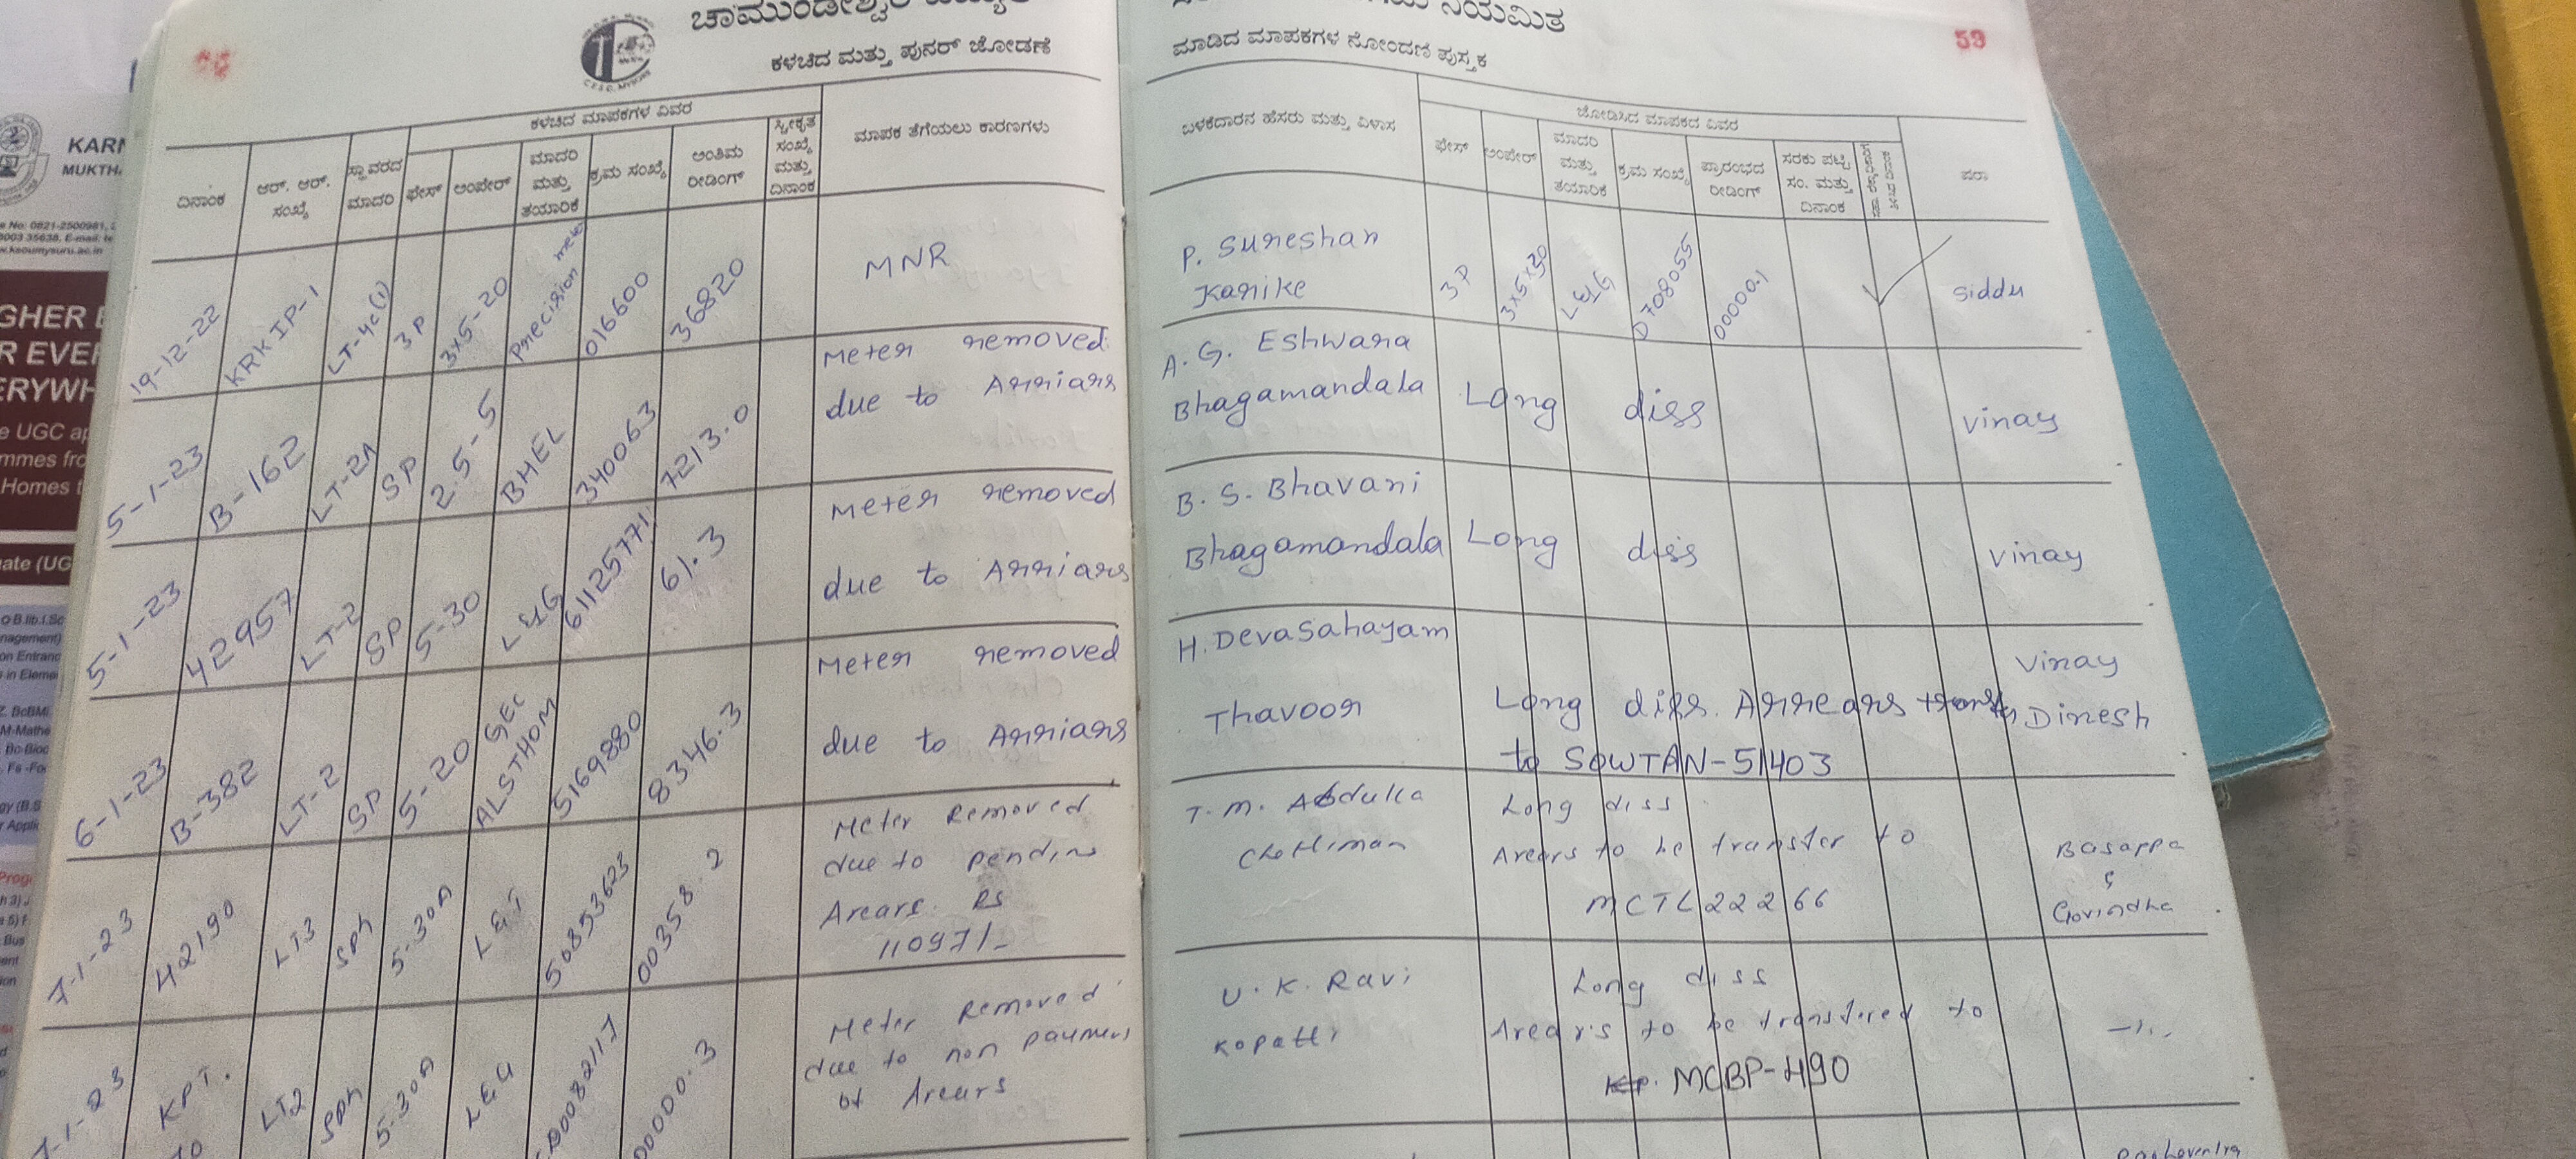 ಕಳಚಿದ ಮತ್ತು ಪುನರ್ ಜೋಡಣೆ
ಕಳಚಿದ ಮಾಪಕಗಳ ವಿವರ
ದಿನಾಂಕ ಆರ್. ಆರ್. ಸಂಖ್ಯೆ ಸ್ಥಾವರದ ಮಾದರಿ ಫೇಸ್ ಅಂಪೇರ್ ಮಾದರಿ ಮತ್ತು ತಯಾರಿಕೆ ಕ್ರಮ ಸಂಖ್ಯೆ ಅಂತಿಮ ರೀಡಿಂಗ್ ಸ್ವೀಕೃತ ಸಂಖ್ಯೆ ಮತ್ತು ದಿನಾಂಕ ಮಾಪಕ ತೆಗೆಯಲು ಕಾರಣಗಳು
19-12-22 KRKIP-1 LT-4c(1) 3P 3x5-20 Precision meter 016600 36820 MNR
5-1-23 B-162 LT-2A SP 2.5-5 BHEL 340063 7213.0 Meter removed
due to Arriars
5-1-23 42957 LT-2 SP 5-30 L&G 61125771 61.3 Meter removed
due to Arriars
6-1-23 B-382 LT-2 SP 5-20 GEC ALSTHOM 5169880 8346.3 Meter removed
due to Arriars
7-1-23 442190 LT3 SPh 5-30A L&T 50853623 00358.2 Meter Removed
due to pending
Arears. Rs
11097/-
7-1-23 KPT. LT2 SPh 5-30A L&G 00082117 00000.3 Meter Removed
due to non payment
of Arears
59
ಮಾಡಿದ ಮಾಪಕಗಳ ನೋಂದಣಿ ಪುಸ್ತಕ
ಬಳಕೆದಾರನ ಹೆಸರು ಮತ್ತು ವಿಳಾಸ ಜೋಡಿಸಿದ ಮಾಪಕದ ವಿವರ
ಫೇಸ್ ಅಂಪೇರ್ ಮಾದರಿ ಮತ್ತು ತಯಾರಿಕೆ ಕ್ರಮ ಸಂಖ್ಯೆ ಪ್ರಾರಂಭದ ರೀಡಿಂಗ್ ಸರಕು ಪಟ್ಟಿ ಸಂ. ಮತ್ತು ದಿನಾಂಕ ಷರಾ
P. Sureshan
Karike 3P 3x5x30 L&G D708055 00000.1 Siddu
A. G. Eshwara
Bhagamandala Long diss Vinay
B. S. Bhavani
Bhagamandala Long diss Vinay
H. Devasahayam Vinay
Thavoor Long diss. Arrears Dinesh
to SOWTAN-51403
T. M. Abdulla Long diss
Arears to be transfer to Basappa
MCTL22266 Govindha
U. K. Ravi Long diss
Kopatti Arears to be transfered to
MCBP-490